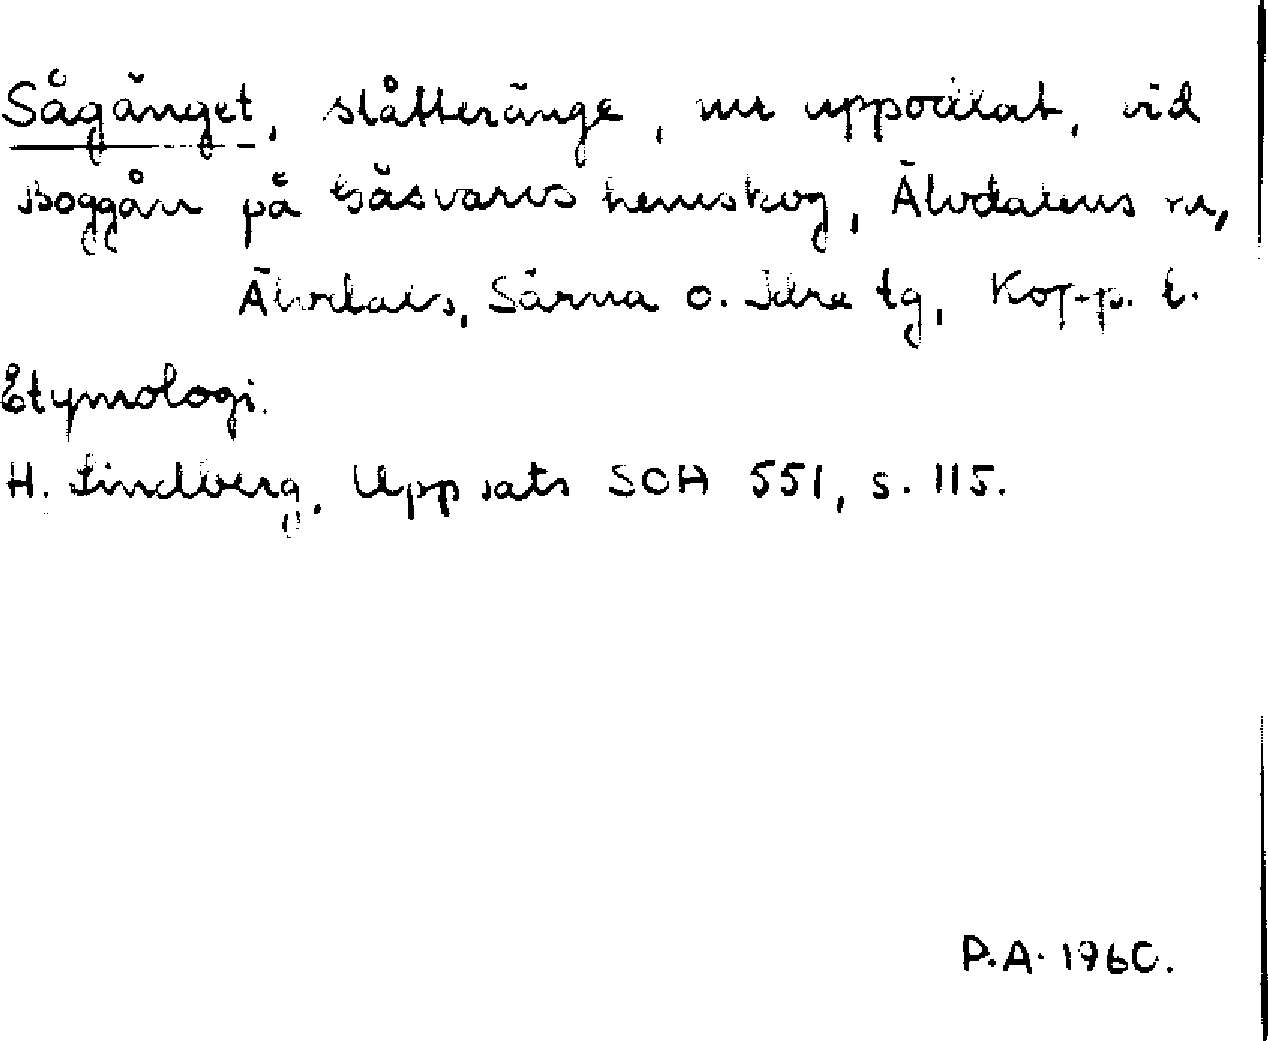 Sågänget, slåtteränge, nu uppodlat, vid
Boggån på Gåsvarvs hemskog, Älvdalens sn,
Älvdals, Särna o. Idre tg, Kopp. l.
Etymologi.
H. Lindberg, Uppsats SOH 551, s. 115.
P.A. 1960.